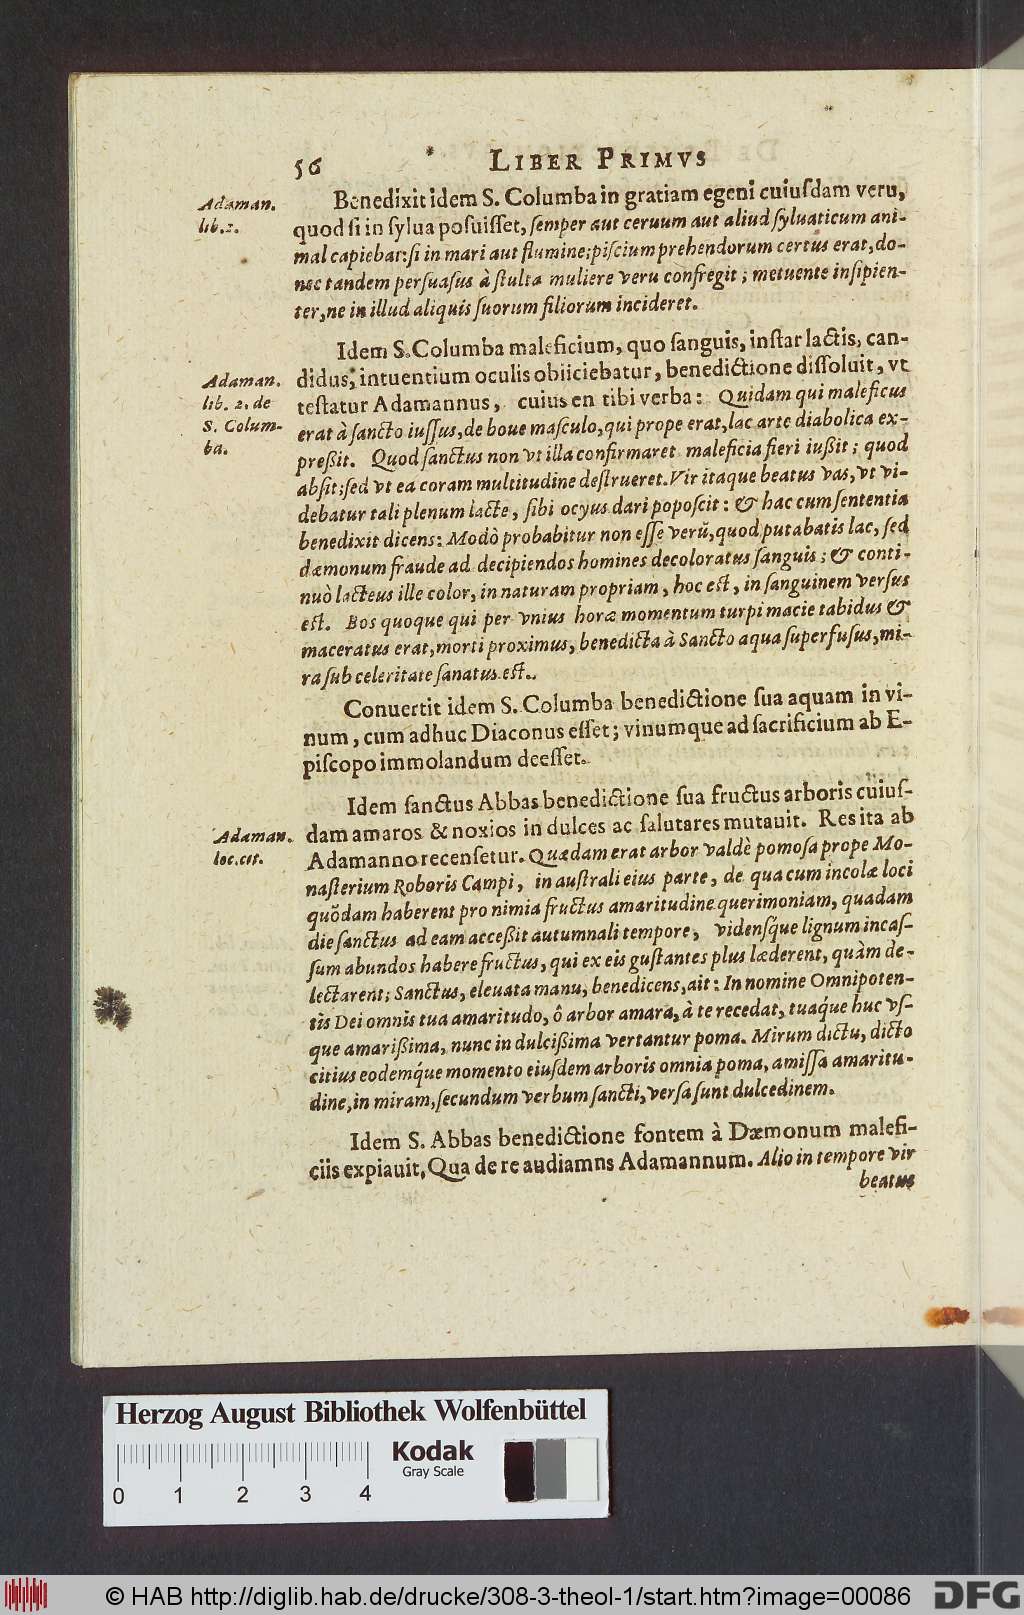 56 LIBER PRIMVS
Adaman.
lib. 2.
Benedixit idem S. Columba in gratiam egeni cuiuſdam veru,
quod ſi in ſylua poſuiſſet, ſemper aut ceruum aut aliud ſyluaticum ani-
mal capiebat: ſi in mari aut flumine; piſcium prehendorum certus erat, do-
nec tandem perſuaſus à ſtulta muliere veru confregit; metuente inſipien-
ter, ne in illud aliquis ſuorum filiorum incideret.
Adaman.
lib. 2. de
S. Colum-
ba.
Idem S. Columba maleficium, quo ſanguis, inſtar lactis, can-
didus, intuentium oculis obiiciebatur, benedictione diſſoluit, vt
teſtatur Adamannus, cuius en tibi verba: Quidam qui maleficus
erat à ſancto iuſſus, de boue maſculo, qui prope erat, lac arte diabolica ex-
preßit. Quod ſanctus non vt illa confirmaret maleficia fieri iußit; quod
abſit; ſed vt ea coram multitudine deſtrueret. Vir itaque beatus vas, vt vi-
debatur tali plenum lacte, ſibi ocyus dari popoſcit: & hac cum ſententia
benedixit dicens: Modò probabitur non eſſe verũ, quod putabatis lac, ſed
dæmonum fraude ad decipiendos homines decoloratus ſanguis; & conti-
nuò lacteus ille color, in naturam propriam, hoc eſt, in ſanguinem verſus
eſt. Bos quoque qui per vnius horæ momentum turpi macie tabidus &
maceratus erat, morti proximus, benedicta à Sancto aqua ſuperfuſus, mi-
ra ſub celeritate ſanatus eſt.
Conuertit idem S. Columba benedictione ſua aquam in vi-
num, cum adhuc Diaconus eſſet; vinumque ad ſacrificium ab E-
piſcopo immolandum deeſſet.
Adaman.
loc. cit.
Idem ſanctus Abbas benedictione ſua fructus arboris cuiuſ-
dam amaros & noxios in dulces ac ſalutares mutauit. Res ita ab
Adamanno recenſetur. Quædam erat arbor valdè pomoſa prope Mo-
naſterium Roboris Campi, in auſtrali eius parte, de qua cum incolæ loci
quõdam haberent pro nimia fructus amaritudine querimoniam, quadam
die ſanctus ad eam acceßit autumnali tempore, videnſq́ue lignum incaſ-
ſum abundos habere fructus, qui ex eis guſtantes plus læderent, quàm de-
lectarent; Sanctus, eleuata manu, benedicens, ait: In nomine Omnipoten-
tis Dei omnis tua amaritudo, ô arbor amara, à te recedat, tuaq́ue huc vſ-
que amarißima, nunc in dulcißima vertantur poma. Mirum dictu, dicto
citius eodemq́ue momento eiuſdem arboris omnia poma, amiſſa amaritu-
dine, in miram, ſecundum verbum ſancti, verſa ſunt dulcedinem.
Idem S. Abbas benedictione fontem à Dæmonum malefi-
ciis expiauit. Qua de re audiamns Adamannum. Alio in tempore vir
beatus
Herzog August Bibliothek Wolfenbüttel
Kodak
Gray Scale
0 1 2 3 4
© HAB http://diglib.hab.de/drucke/308-3-theol-1/start.htm?image=00086
DFG